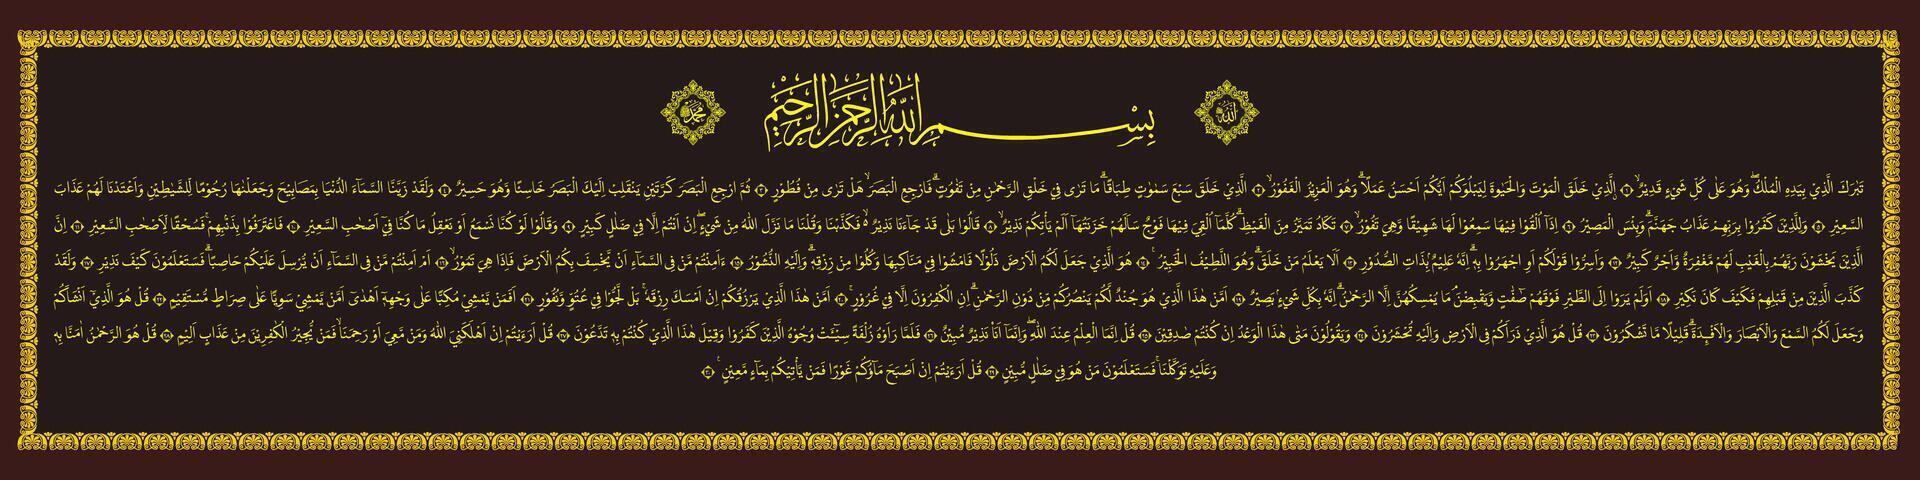 الله
بِسْمِ اللهِ الرَّحْمٰنِ الرَّحِيْمِ
محمد
تَبٰرَكَ الَّذِيْ بِيَدِهِ الْمُلْكُۖ وَهُوَ عَلٰى كُلِّ شَيْءٍ قَدِيْرٌۙ ۝ ۨالَّذِيْ خَلَقَ الْمَوْتَ وَالْحَيٰوةَ لِيَبْلُوَكُمْ اَيُّكُمْ اَحْسَنُ عَمَلًاۗ وَهُوَ الْعَزِيْزُ الْغَفُوْرُۙ ۝ الَّذِيْ خَلَقَ سَبْعَ سَمٰوٰتٍ طِبَاقًاۗ مَا تَرٰى فِيْ خَلْقِ الرَّحْمٰنِ مِنْ تَفٰوُتٍۗ فَارْجِعِ الْبَصَرَۙ هَلْ تَرٰى مِنْ فُطُوْرٍ ۝ ثُمَّ ارْجِعِ الْبَصَرَ كَرَّتَيْنِ يَنْقَلِبْ اِلَيْكَ الْبَصَرُ خَاسِئًا وَّهُوَ حَسِيْرٌ ۝ وَلَقَدْ زَيَّنَّا السَّمَاۤءَ الدُّنْيَا بِمَصَابِيْحَ وَجَعَلْنٰهَا رُجُوْمًا لِّلشَّيٰطِيْنِ وَاَعْتَدْنَا لَهُمْ عَذَابَ
السَّعِيْرِ ۝ وَلِلَّذِيْنَ كَفَرُوْا بِرَبِّهِمْ عَذَابُ جَهَنَّمَۗ وَبِئْسَ الْمَصِيْرُ ۝ اِذَآ اُلْقُوْا فِيْهَا سَمِعُوْا لَهَا شَهِيْقًا وَّهِيَ تَفُوْرُۙ ۝ تَكَادُ تَمَيَّزُ مِنَ الْغَيْظِۗ كُلَّمَآ اُلْقِيَ فِيْهَا فَوْجٌ سَاَلَهُمْ خَزَنَتُهَآ اَلَمْ يَأْتِكُمْ نَذِيْرٌۙ ۝ قَالُوْا بَلٰى قَدْ جَاۤءَنَا نَذِيْرٌ ەۙ فَكَذَّبْنَا وَقُلْنَا مَا نَزَّلَ اللّٰهُ مِنْ شَيْءٍۖ اِنْ اَنْتُمْ اِلَّا فِيْ ضَلٰلٍ كَبِيْرٍ ۝ وَقَالُوْا لَوْ كُنَّا نَسْمَعُ اَوْ نَعْقِلُ مَا كُنَّا فِيْٓ اَصْحٰبِ السَّعِيْرِ ۝ فَاعْتَرَفُوْا بِذَنْۢبِهِمْۚ فَسُحْقًا لِّاَصْحٰبِ السَّعِيْرِ ۝ اِنَّ
الَّذِيْنَ يَخْشَوْنَ رَبَّهُمْ بِالْغَيْبِ لَهُمْ مَّغْفِرَةٌ وَّاَجْرٌ كَبِيْرٌ ۝ وَاَسِرُّوْا قَوْلَكُمْ اَوِ اجْهَرُوْا بِهٖۗ اِنَّهٗ عَلِيْمٌۢ بِذَاتِ الصُّدُوْرِ ۝ اَلَا يَعْلَمُ مَنْ خَلَقَۗ وَهُوَ اللَّطِيْفُ الْخَبِيْرُ ۝ هُوَ الَّذِيْ جَعَلَ لَكُمُ الْاَرْضَ ذَلُوْلًا فَامْشُوْا فِيْ مَنَاكِبِهَا وَكُلُوْا مِنْ رِّزْقِهٖۗ وَاِلَيْهِ النُّشُوْرُ ۝ ءَاَمِنْتُمْ مَّنْ فِى السَّمَاۤءِ اَنْ يَّخْسِفَ بِكُمُ الْاَرْضَ فَاِذَا هِيَ تَمُوْرُۙ ۝ اَمْ اَمِنْتُمْ مَّنْ فِى السَّمَاۤءِ اَنْ يُّرْسِلَ عَلَيْكُمْ حَاصِبًاۗ فَسَتَعْلَمُوْنَ كَيْفَ نَذِيْرِ ۝ وَلَقَدْ
كَذَّبَ الَّذِيْنَ مِنْ قَبْلِهِمْ فَكَيْفَ كَانَ نَكِيْرِ ۝ اَوَلَمْ يَرَوْا اِلَى الطَّيْرِ فَوْقَهُمْ صٰۤفّٰتٍ وَّيَقْبِضْنَۘ مَا يُمْسِكُهُنَّ اِلَّا الرَّحْمٰنُۗ اِنَّهٗ بِكُلِّ شَيْءٍۢ بَصِيْرٌ ۝ اَمَّنْ هٰذَا الَّذِيْ هُوَ جُنْدٌ لَّكُمْ يَنْصُرُكُمْ مِّنْ دُوْنِ الرَّحْمٰنِۗ اِنِ الْكٰفِرُوْنَ اِلَّا فِيْ غُرُوْرٍۚ ۝ اَمَّنْ هٰذَا الَّذِيْ يَرْزُقُكُمْ اِنْ اَمْسَكَ رِزْقَهٗۚ بَلْ لَّجُّوْا فِيْ عُتُوٍّ وَّنُفُوْرٍ ۝ اَفَمَنْ يَّمْشِيْ مُكِبًّا عَلٰى وَجْهِهٖٓ اَهْدٰىٓ اَمَّنْ يَّمْشِيْ سَوِيًّا عَلٰى صِرَاطٍ مُّسْتَقِيْمٍ ۝ قُلْ هُوَ الَّذِيْٓ اَنْشَاَكُمْ
وَجَعَلَ لَكُمُ السَّمْعَ وَالْاَبْصَارَ وَالْاَفْـِٕدَةَۗ قَلِيْلًا مَّا تَشْكُرُوْنَ ۝ قُلْ هُوَ الَّذِيْ ذَرَاَكُمْ فِى الْاَرْضِ وَاِلَيْهِ تُحْشَرُوْنَ ۝ وَيَقُوْلُوْنَ مَتٰى هٰذَا الْوَعْدُ اِنْ كُنْتُمْ صٰدِقِيْنَ ۝ قُلْ اِنَّمَا الْعِلْمُ عِنْدَ اللّٰهِۖ وَاِنَّمَآ اَنَا۠ نَذِيْرٌ مُّبِيْنٌ ۝ فَلَمَّا رَاَوْهُ زُلْفَةً سِيْۤـَٔتْ وُجُوْهُ الَّذِيْنَ كَفَرُوْا وَقِيْلَ هٰذَا الَّذِيْ كُنْتُمْ بِهٖ تَدَّعُوْنَ ۝ قُلْ اَرَءَيْتُمْ اِنْ اَهْلَكَنِيَ اللّٰهُ وَمَنْ مَّعِيَ اَوْ رَحِمَنَاۙ فَمَنْ يُّجِيْرُ الْكٰفِرِيْنَ مِنْ عَذَابٍ اَلِيْمٍ ۝ قُلْ هُوَ الرَّحْمٰنُ اٰمَنَّا بِهٖ
وَعَلَيْهِ تَوَكَّلْنَاۚ فَسَتَعْلَمُوْنَ مَنْ هُوَ فِيْ ضَلٰلٍ مُّبِيْنٍ ۝ قُلْ اَرَءَيْتُمْ اِنْ اَصْبَحَ مَاۤؤُكُمْ غَوْرًا فَمَنْ يَّأْتِيْكُمْ بِمَاۤءٍ مَّعِيْنٍ ۚ ۝